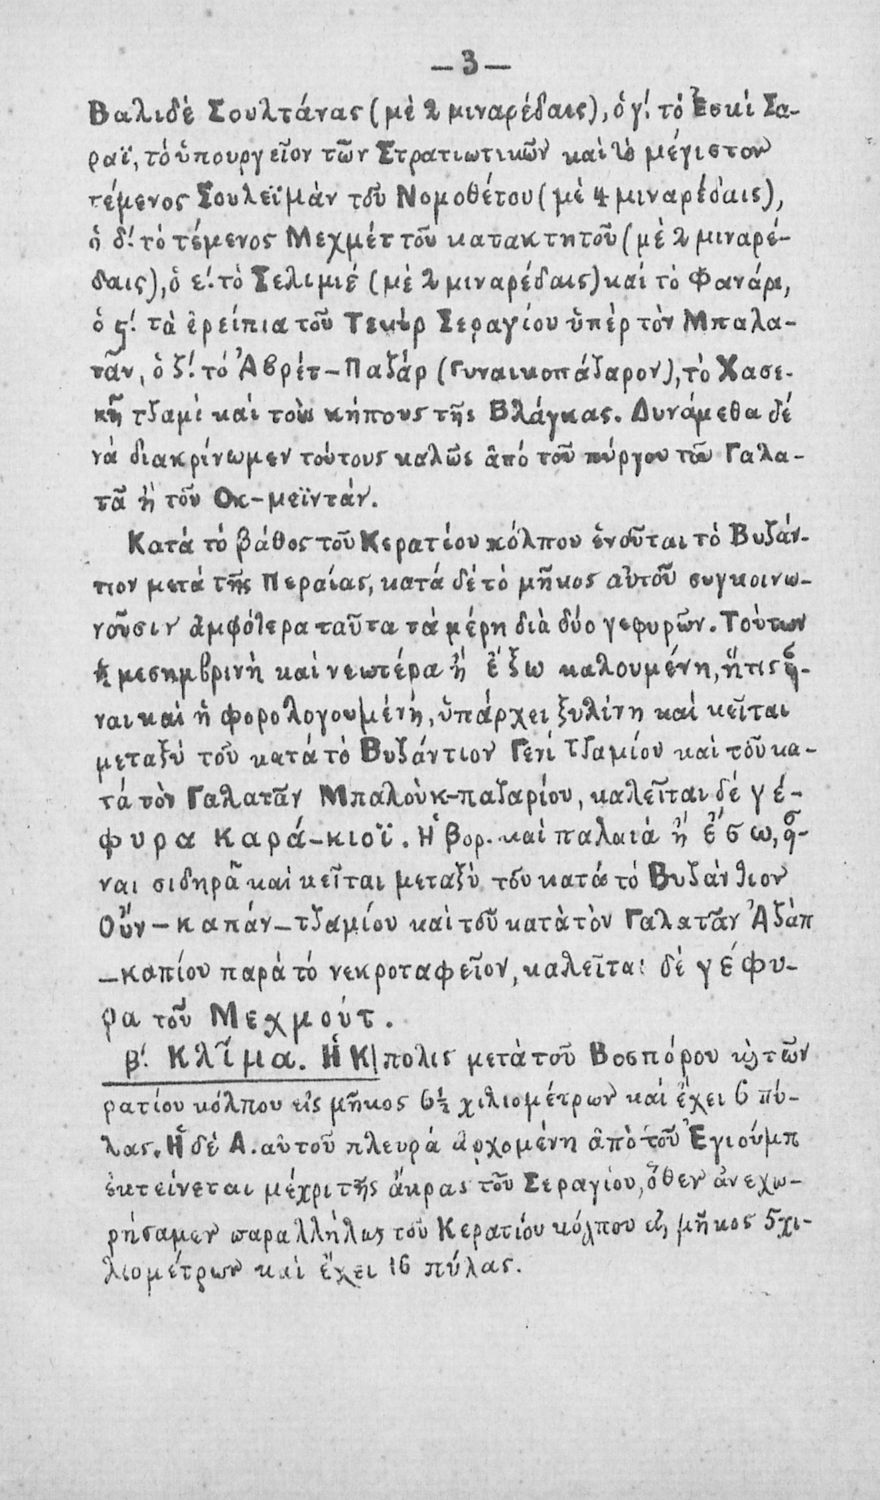 — 3 —
Βαλιδὲ Σουλτάνας (μὲ 2 μιναρέδαις), ὁ γ΄. τὸ Ἐσκὶ Σα-
ραϊ, τὸ ὑπουργεῖον τῶν Στρατιωτικῶν καὶ τὸ μέγιστον
τέμενος Σουλεϊμὰν τοῦ Νομοθέτου (μὲ 4 μιναρέδαις),
ὁ δ΄. τὸ τέμενος Μεχμέτ τοῦ κατακτητοῦ (μὲ 2 μιναρέ-
δαις), ὁ ε΄. τὸ Σελιμιέ (μὲ 2 μιναρέδαις) καὶ τὸ Φανάρι,
ὁ ς΄. τὰ ἐρείπια τοῦ Τεκὶρ Σεραγίου ὑπὲρ τὸν Μπαλα-
τᾶν, ὁ ζ΄. τό Ἀβρέτ-Παζάρ (Γυναικοπάζαρον), τὸ Χασε-
κῆ τζαμὶ καὶ τοὺς κήπους τῆς Βλάγκας. Δυνάμεθα δέ
νὰ διακρίνωμεν τούτους καλῶς ἀπό τοῦ πύργου τοῦ Γαλα-
τᾶ ἢ τοῦ Οκ-μεϊντάν.
Κατὰ τὸ βάθος τοῦ Κερατίου κόλπου ἑνοῦται τὸ Βυζάν-
τιον μετὰ τῆς Περαίας, κατὰ δὲ τὸ μῆκος αὐτοῦ συγκοινω-
νοῦσιν ἀμφότερα ταῦτα τὰ μέρη διὰ δύο γεφυρῶν. Τούτων
ἡ μεσημβρινὴ καὶ νεωτέρα ἢ ἔξω καλουμένη, ἥτις εἶ-
ναι καὶ ἡ φορολογουμένη, ὑπάρχει ξυλίνη καὶ κεῖται
μεταξὺ τοῦ κατὰ τὸ Βυζάντιον Γενί Τζαμίου καὶ τοῦ κα-
τὰ τὸν Γαλατᾶν Μπαλοὺκ-παζαρίου, καλεῖται δέ γέ-
φυρα Καρά-κιοϊ. Ἡ βορ. καὶ παλαιὰ ἢ ἔσω, εἶ-
ναι σιδηρᾶ καὶ κεῖται μεταξὺ τοῦ κατὰ τὸ Βυζάντιον
Οὖν-καπάν-τζαμίου καὶ τοῦ κατὰ τὸν Γαλατᾶν Ἀζὰπ
-καπίου παρὰ τὸ νεκροταφεῖον, καλεῖται δὲ γέφυ-
ρα τοῦ Μεχμούτ.
β΄. Κλῖμα. Ἡ Κ|πολις μετὰ τοῦ Βοσπόρου κ τῶν
ρατίου κόλπου εἰς μῆκος 6½ χιλιομέτρων καὶ ἔχει 6 πύ-
λας. Ἡ δὲ Α. αὐτοῦ πλευρά ἀρχομένη ἀπὸ τοῦ Ἐγιούμπ
ἐκτείνεται μέχρι τῆς ἄκρας τοῦ Σεραγίου, ὅθεν ἀνεχω-
ρήσαμεν παραλλήλως τοῦ Κερατίου κόλπου εἰς μῆκος 5 χι-
λιομέτρων καὶ ἔχει 16 πύλας.